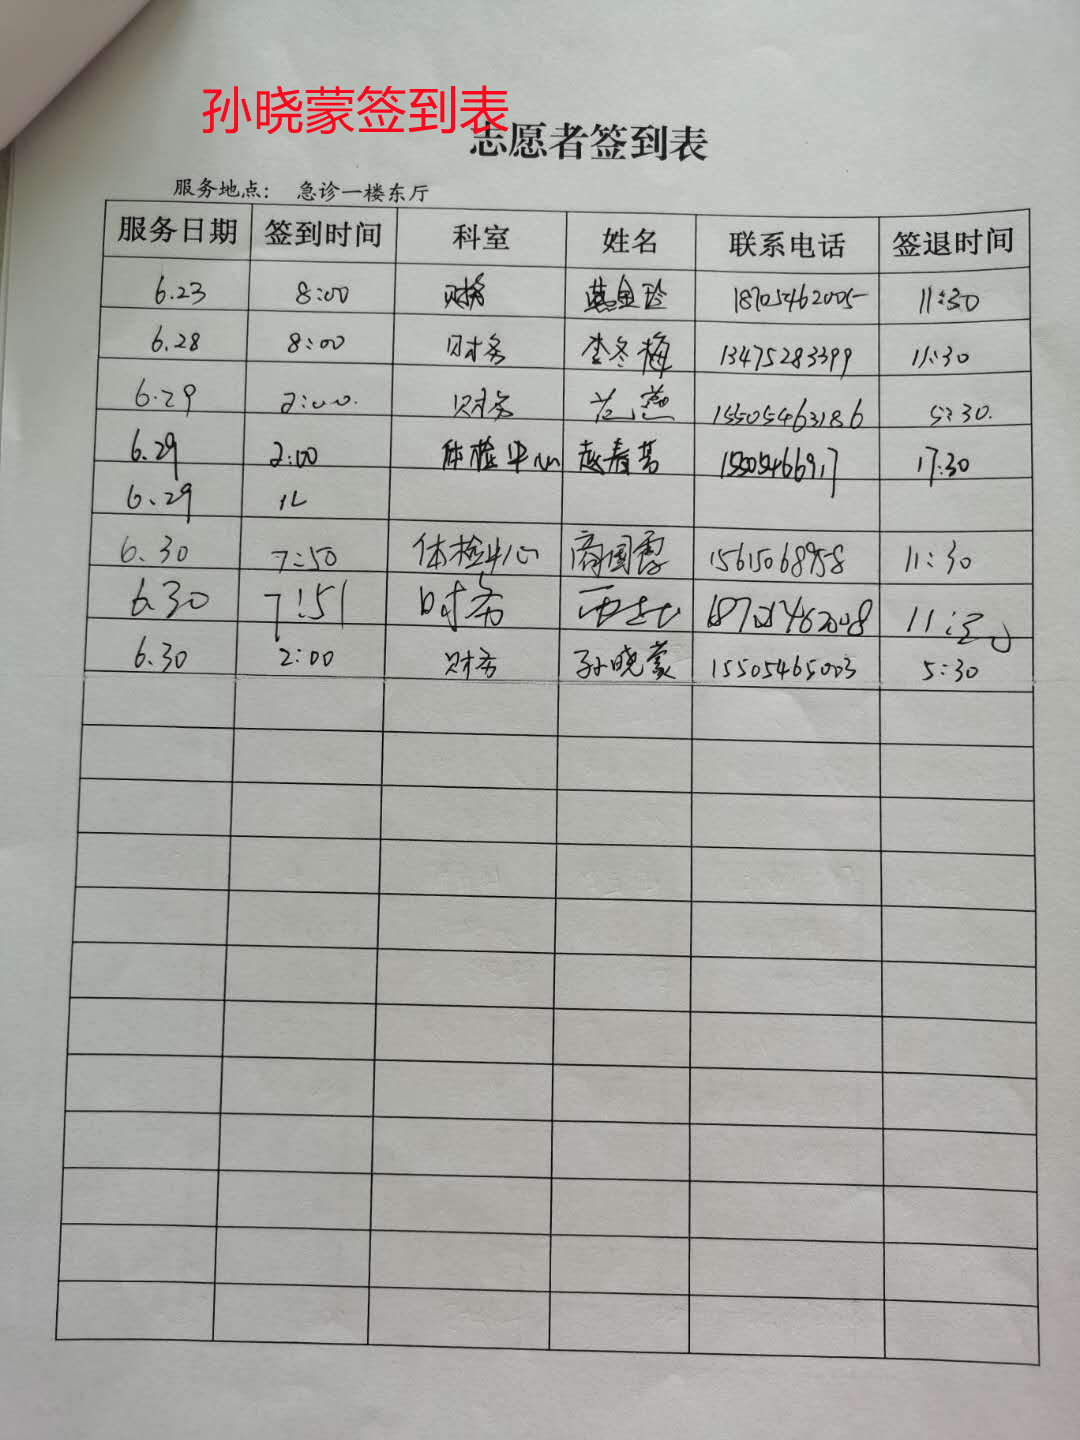 孙晓蒙签到表
志愿者签到表
服务地点： 急诊一楼东厅
服务日期 签到时间 科室 姓名 联系电话 签退时间
6.23 8:00 财务 18705462005 11:30
6.28 8:00 财务 李冬梅 13475283399 11:30
6.29 2:00. 财务 范燕 15505463186 5:30.
6.29 2:00 体检中心 赵春苗 15505466917 17:30
6.29
6.30 7:50 体检中心 商国霞 15615068958 11:30
6.30 7:51 财务 18721462008 11:30
6.30 2:00 财务 孙晓蒙 15505465003 5:30